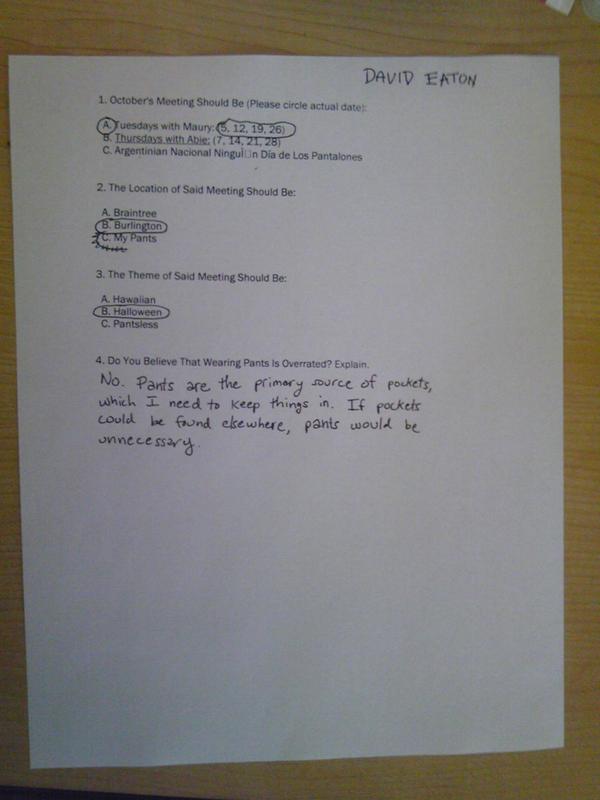 DAVID EATON
1. October's Meeting Should Be (Please circle actual date):
A. Tuesdays with Maury: (5, 12, 19, 26)
B. Thursdays with Abie: (7, 14, 21, 28)
C. Argentinian Nacional Ninguí□n Día de Los Pantalones
2. The Location of Said Meeting Should Be:
A. Braintree
B. Burlington
C. My Pants
3. The Theme of Said Meeting Should Be:
A. Hawaiian
B. Halloween
C. Pantsless
4. Do You Believe That Wearing Pants Is Overrated? Explain.
No. Pants are the primary source of pockets,
which I need to keep things in. If pockets
could be found elsewhere, pants would be
unnecessary.